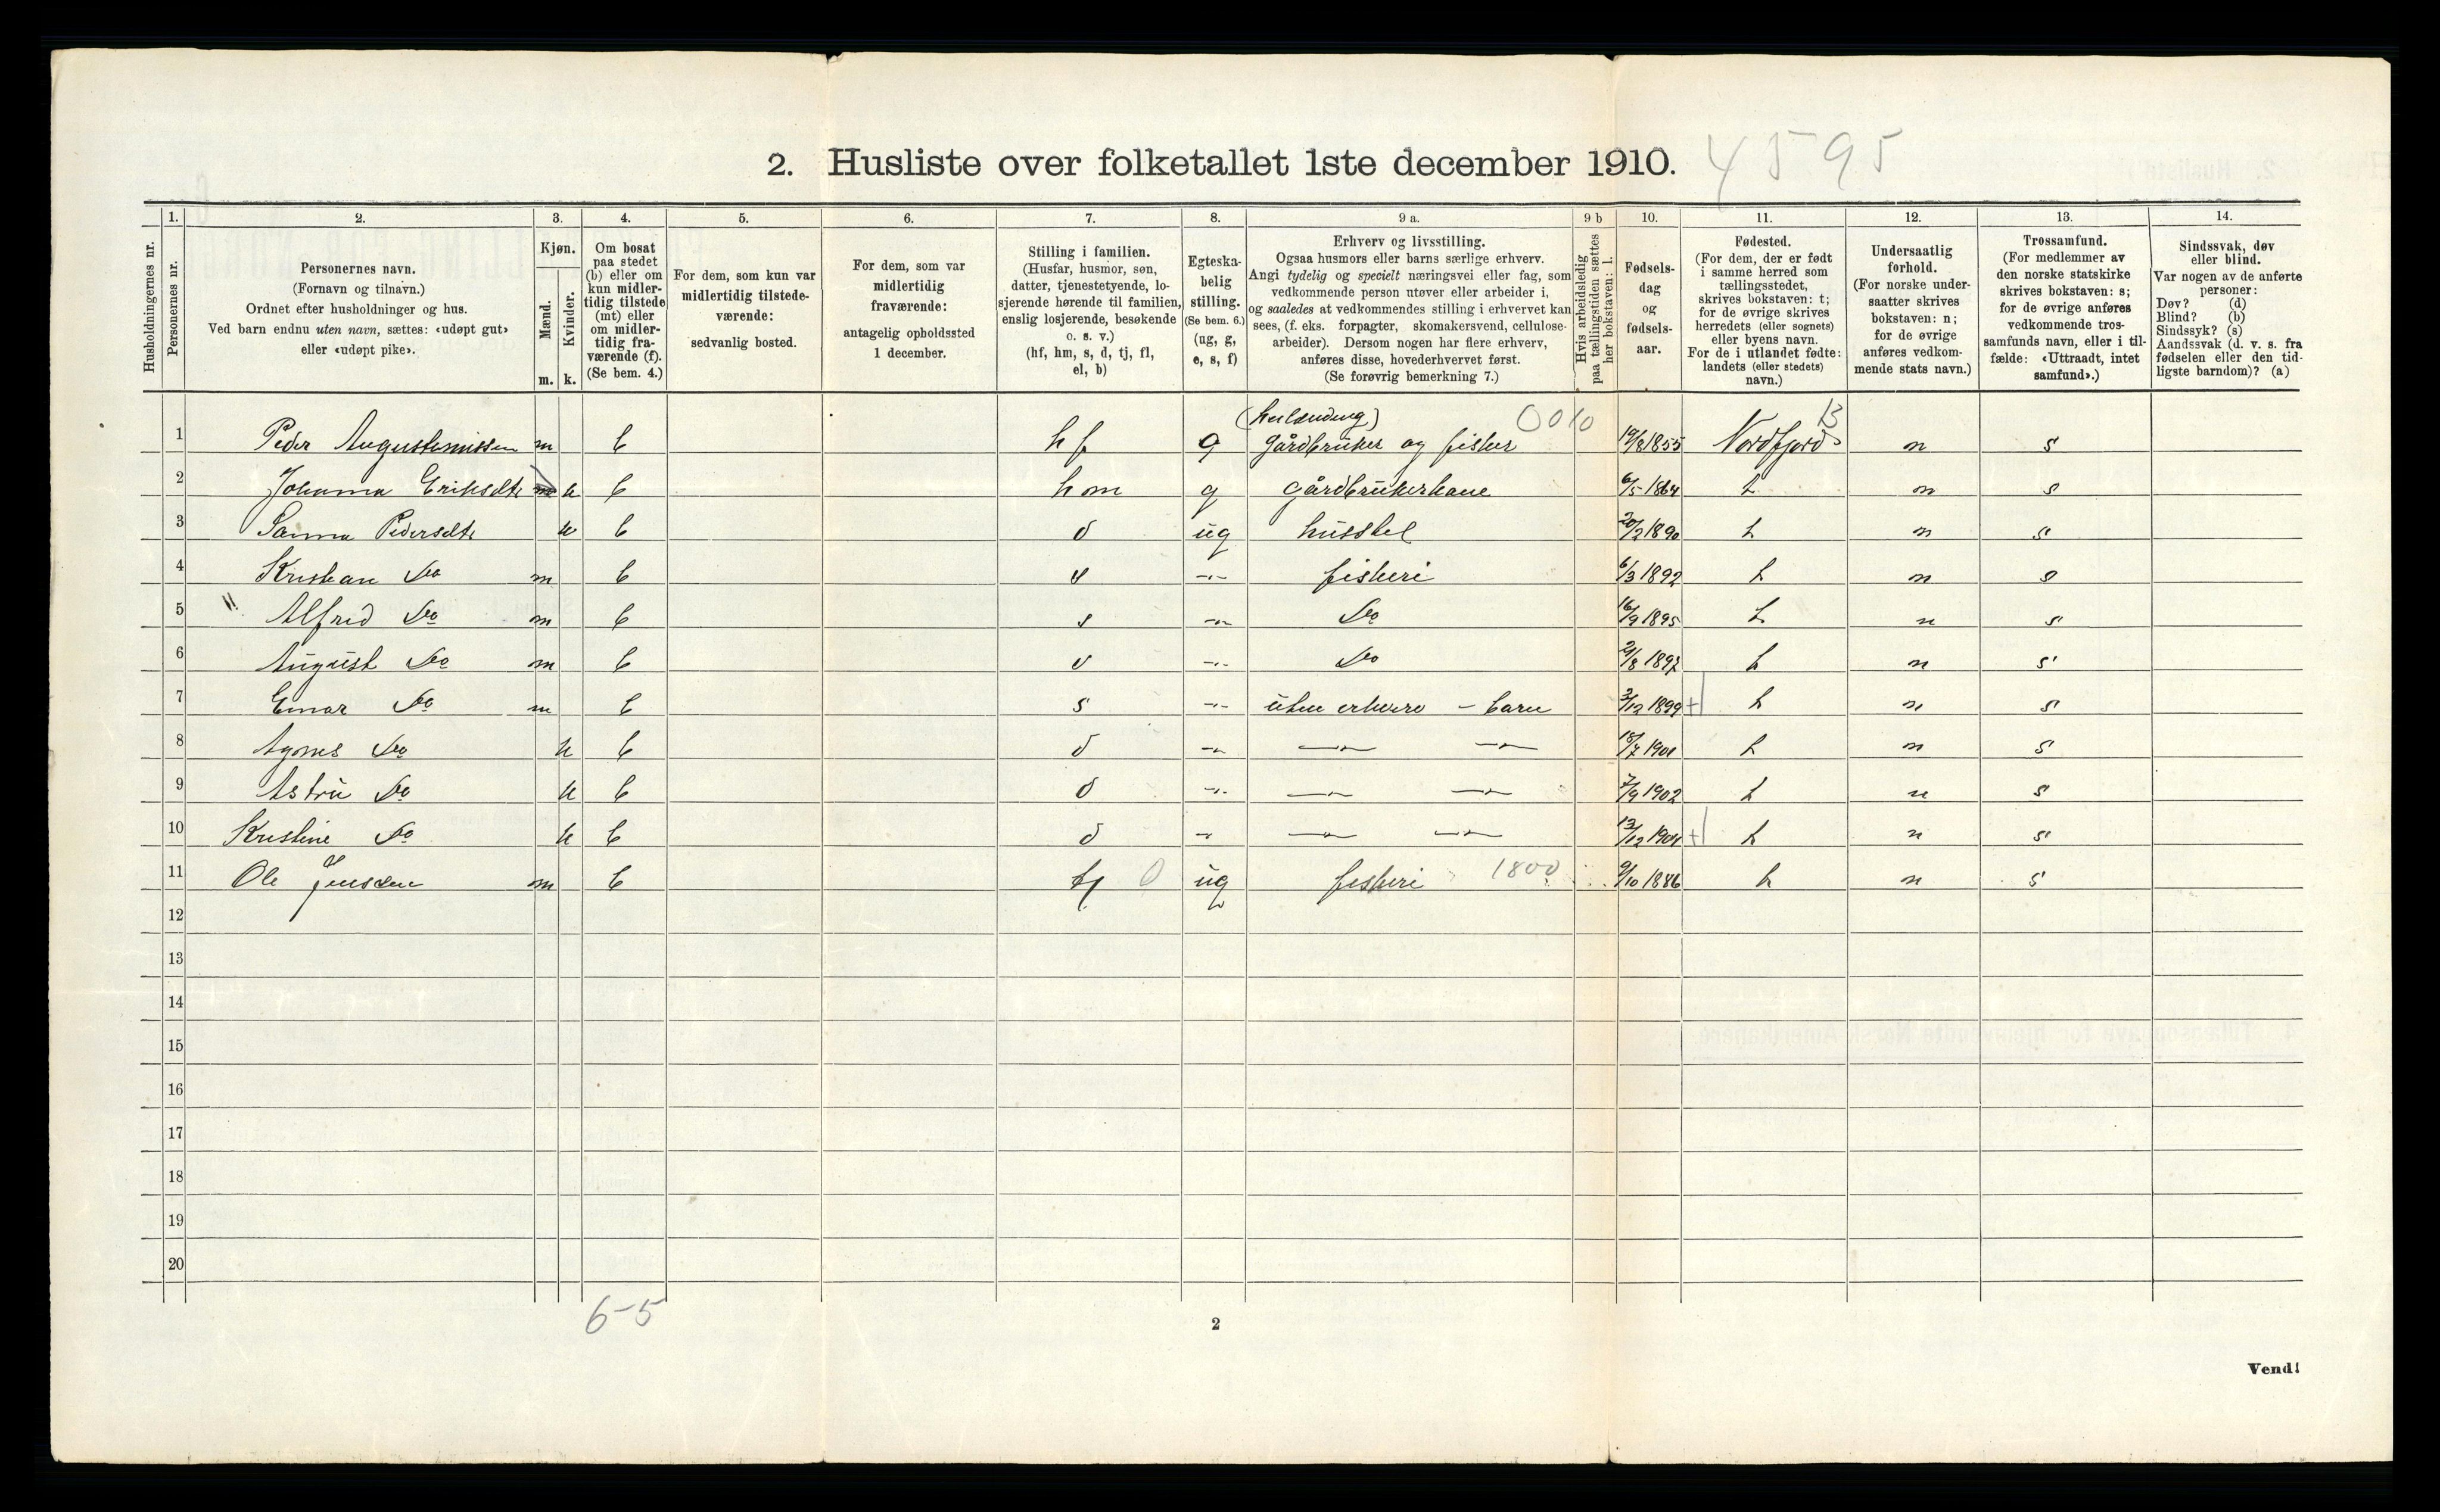 2. Husliste over folketallet 1ste december 1910. 4595
1. 2. 3. 4. 5. 6. 7. 8. 9 a. 9 b 10. 11. 12. 13. 14.
Husholdningernes nr.
Personernes nr.
Personernes navn.
(Fornavn og tilnavn.)
Ordnet efter husholdninger og hus.
Ved barn endnu uten navn, sættes: «udøpt gut»
eller «udøpt pike».
Kjøn.
Mænd.
Kvinder.
m. k.
Om bosat
paa stedet
(b) eller om
kun midler-
tidig tilstede
(mt) eller
om midler-
tidig fra-
værende (f).
(Se bem. 4.)
For dem, som kun var
midlertidig tilstede-
værende:
sedvanlig bosted.
For dem, som var
midlertidig
fraværende:
antagelig opholdssted
1 december.
Stilling i familien.
(Husfar, husmor, søn,
datter, tjenestetyende, lo-
sjerende hørende til familien,
enslig losjerende, besøkende
o. s. v.)
(hf, hm, s, d, tj, fl,
el, b)
Egteska-
belig
stilling.
(Se bem. 6.)
(ug, g,
e, s, f)
Erhverv og livsstilling.
Ogsaa husmors eller barns særlige erhverv.
Angi tydelig og specielt næringsvei eller fag, som
vedkommende person utøver eller arbeider i,
og saaledes at vedkommendes stilling i erhvervet kan
sees, (f. eks. forpagter, skomakersvend, cellulose-
arbeider). Dersom nogen har flere erhverv,
anføres disse, hovederhvervet først.
(Se forøvrig bemerkning 7.)
Hvis arbeidsledig
paa tællingstiden sættes
her bokstaven: l.
Fødsels-
dag
og
fødsels-
aar.
Fødested.
(For dem, der er født
i samme herred som
tællingsstedet,
skrives bokstaven: t;
for de øvrige skrives
herredets (eller sognets)
eller byens navn.
For de i utlandet fødte:
landets (eller stedets)
navn.)
Undersaatlig
forhold.
(For norske under-
saatter skrives
bokstaven: n;
for de øvrige
anføres vedkom-
mende stats navn.)
Trossamfund.
(For medlemmer av
den norske statskirke
skrives bokstaven: s;
for de øvrige anføres
vedkommende tros-
samfunds navn, eller i til-
fælde: «Uttraadt, intet
samfund».)
Sindssvak, døv
eller blind.
Var nogen av de anførte
personer:
Døv? (d)
Blind? (b)
Sindssyk? (s)
Aandssvak (d. v. s. fra
fødselen eller den tid-
ligste barndom)? (a)
0010 B
1 Peder m b hf g Gårdbruker og fisker 19/8 1855 Nordfjord n s
2 Johanna Eriksdtr k b hm g Gårdbrukerkone 6/5 1864 t n s
3 Sanna Pedersdtr k b d ug husstel 20/2 1890 t n s
4 Kristian Do m b s -"- fiskeri 6/3 1892 t n s
5 Alfred Do m b s -"- Do 16/9 1895 t n s
6 August Do m b s -"- Do 21/8 1897 t n s
7 Einar Do m b s -"- uten erhverv - barn 3/12 1899 + t n s
8 Agnes Do k b d -"- -"- -"- 18/7 1901 t n s
9 Do k b d -"- -"- -"- 7/9 1902 t n s
10 Kristine Do k b d -"- -"- -"- 13/12 1904 + t n s
11 Ole Jensen m b tj 0 ug fiskeri 1800 9/10 1886 t n s
12
13
14
15
16
17
18
19
20
6-5
2
Vend!